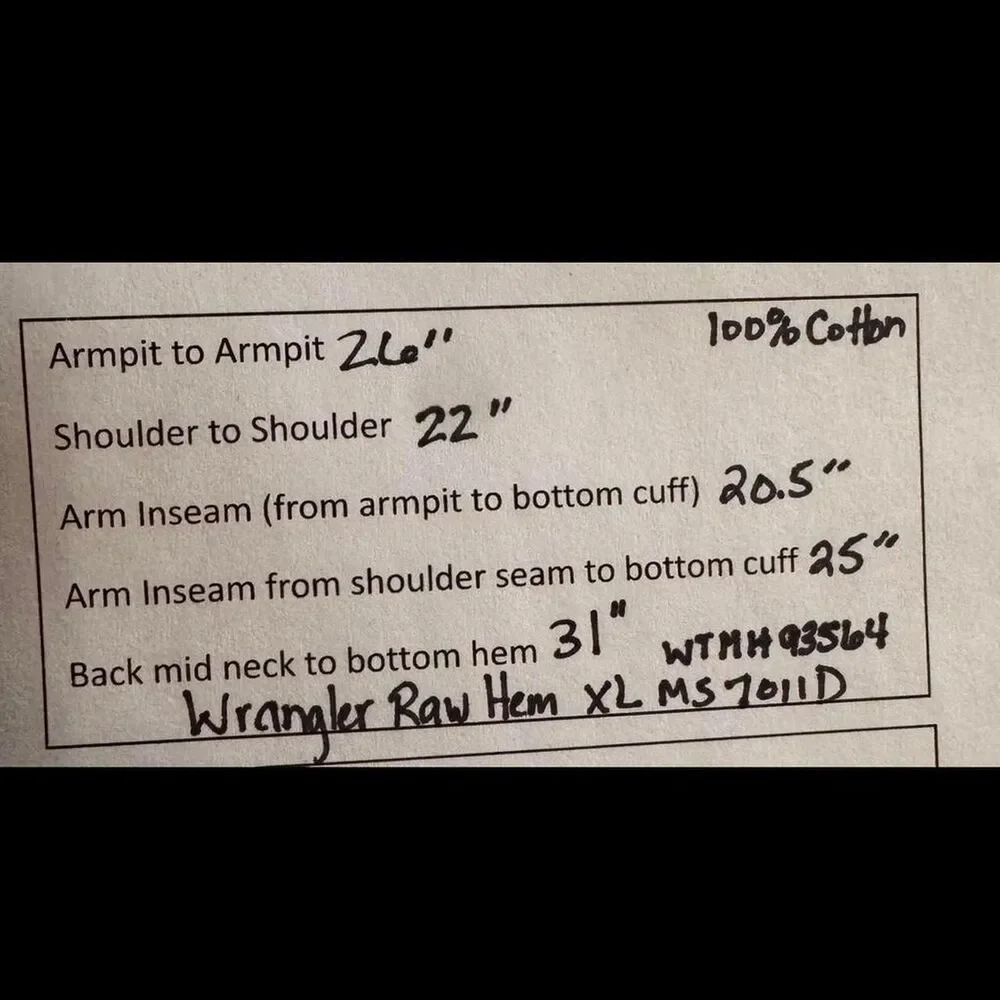 Armpit to Armpit 26" 100% Cotton
Shoulder to Shoulder 22"
Arm Inseam (from armpit to bottom cuff) 20.5"
Arm Inseam from shoulder seam to bottom cuff 25"
Back mid neck to bottom hem 31" WTMH93564
Wrangler Raw Hem XL MS7011D